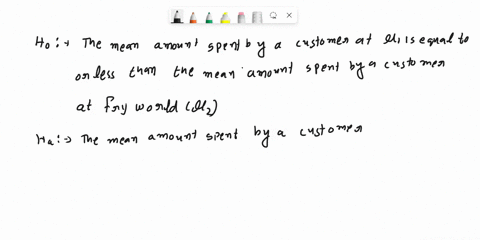 H0 :→ The mean amount spent by a customer at μ1 is equal to
or less than the mean amount spent by a customer
at fry world (μ2)
Ha :→ The mean amount spent by a customer